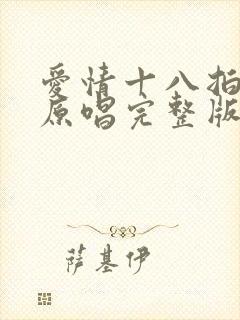 愛情十八拍
原唱完整版
萨基伊